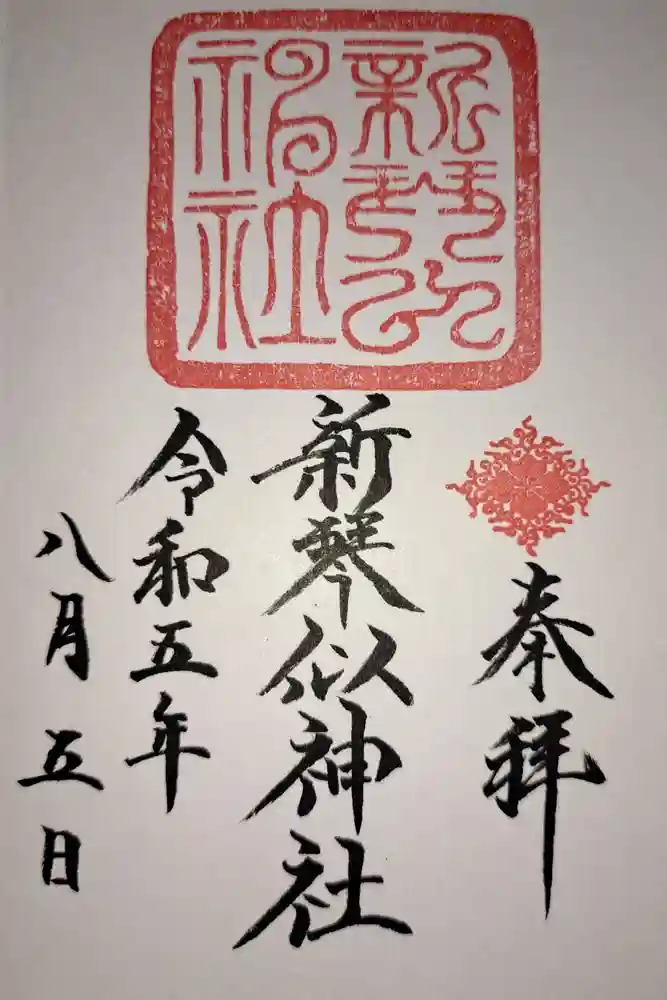 奉拝
新琴似神社
令和五年
八月五日
新琴似
神社